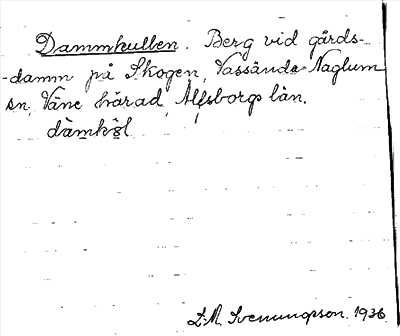 Dammkullen. Berg vid gårds-
-damm på Skogen, Vassända-Naglum
sn, Väne härad, Älfsborgs län.
dàmköl
L.M. Svenungsson. 1936